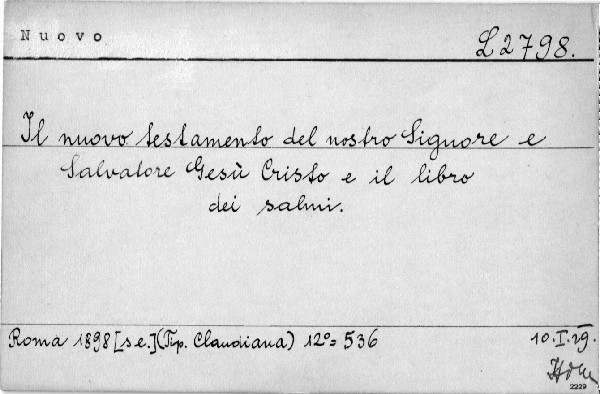 Nuovo
L 2798.
Il nuovo testamento del nostro Signore e
Salvatore Gesù Cristo e il libro
dei salmi.
Roma 1898 [s e.] (Tip. Claudiana) 12° = 536
10.I.29.
2229